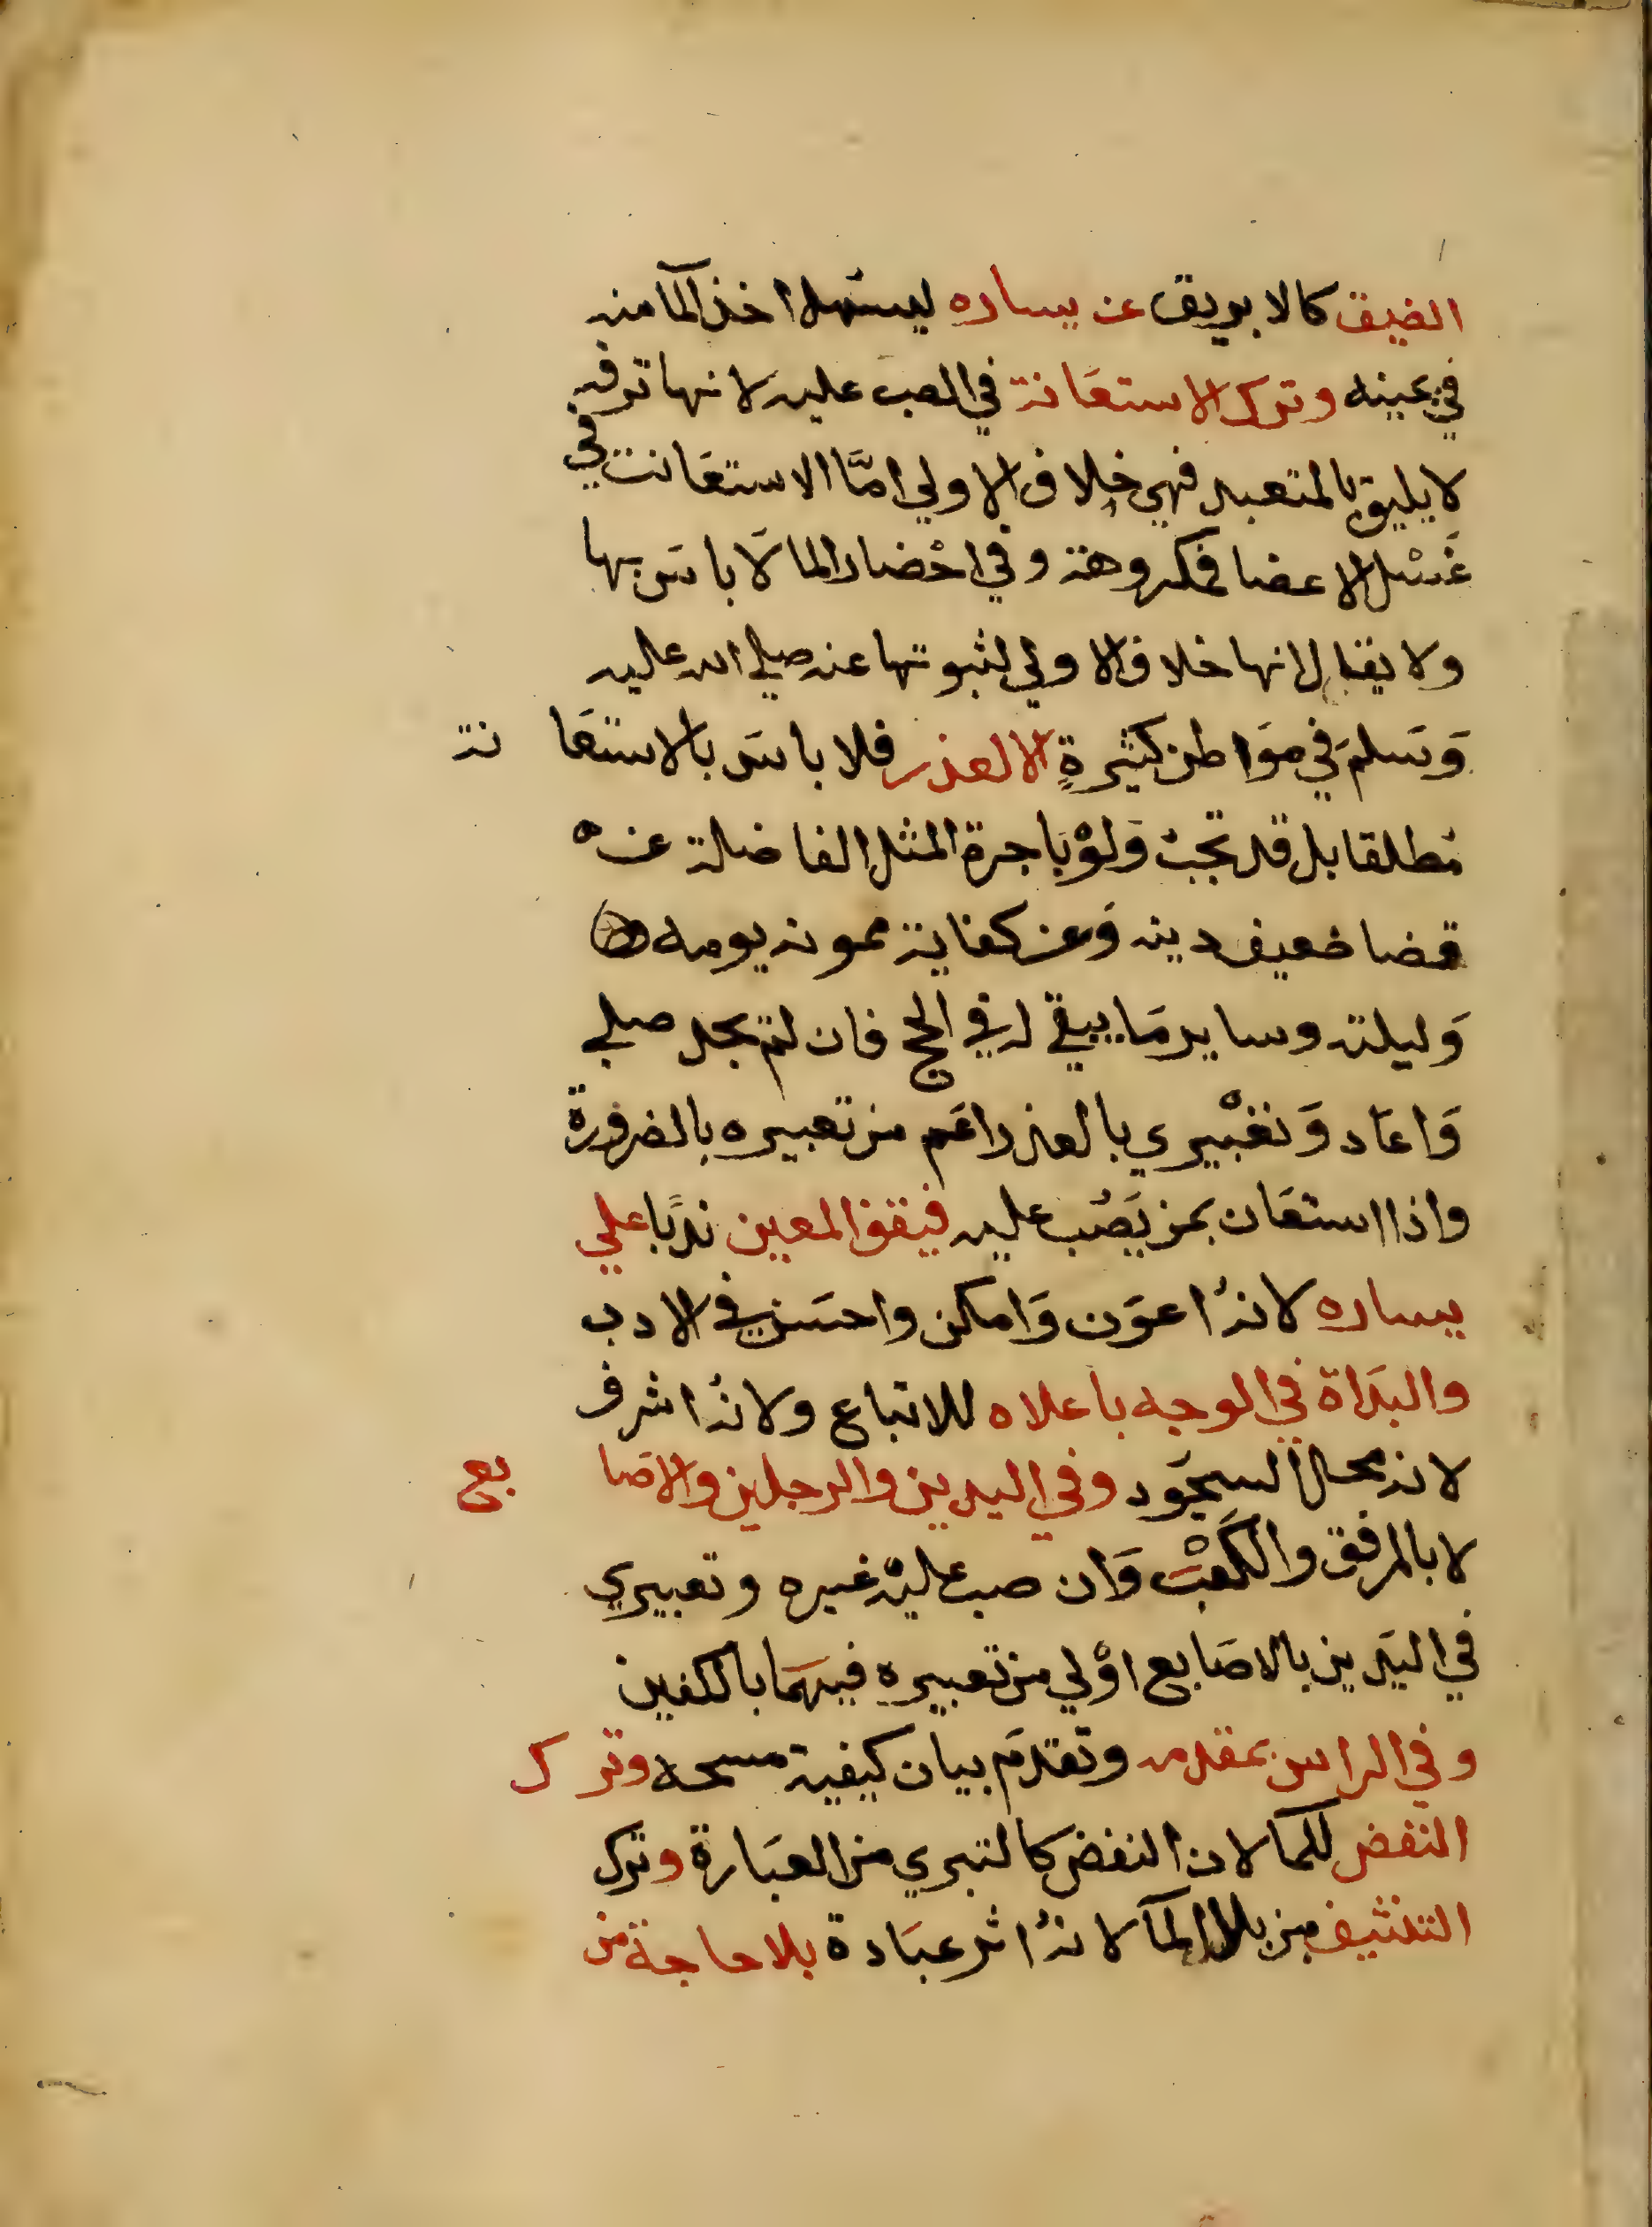 الضيق كالابريق عن يساره ليسهل اخذ المآ منه
في يمينه وترك الاستعانة في الصب عليه لانها ترفه
لا يليق بالمتعبد فهي خلاف الاولي امَّا الاستعانت في
غَسْل الاعضا فمكروهة وفي احْضار الما لَا باسَ بها
ولا يقال انها خلاف الاولي لثبوتها عنه صلي الله عليه
وَسَلمَ في موَاطن كثيرةٍ الا لعذر فلا باسَ بالاستعَا نة
مُطلقا بل قد تجبُ وَلوْ باجرة المثل الفاضلة عن
قضا دينه وَعن كفاية ممونه يومه
وَليلته وساير مَا يبقي له في الحج فان لمْ يجد صلي
وَاعَاد وَتعْبيري بالعذر اعَم من تعبيره بالضرورة
واذا استعَان بمن يَصُب عليه فيقف المعين ندبًا علي
يساره لانهُ اعوَن وَامكن واحسَن في الادب
والبَداة في الوجه باعلاه للاتباع ولانهُ اشرف
لانه محل السجوَد وفي اليدين والرجلين والاصَا بع
لا بالمرفق والكَعْبَ وَان صب عليْه غيره وتعبيري
في اليَدين بالاصَابع اوْلي من تعبيره فيهمَا بالكفين
وفي الراس بمقدمه وتقدمَ بيان كيفية مسحه وترك
النفض للما لان النفض كالتبري من العبَارة وترك
التنشيف من بلل المآ لانهُ اثر عبَادة بلا حاجة من